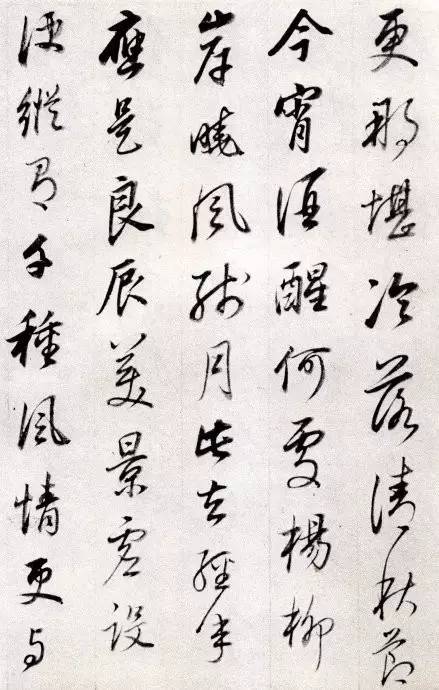 更那堪冷落清秋節
今宵酒醒何處楊柳
岸曉風殘月此去經年
應是良辰美景虛設
便縱有千種風情更與